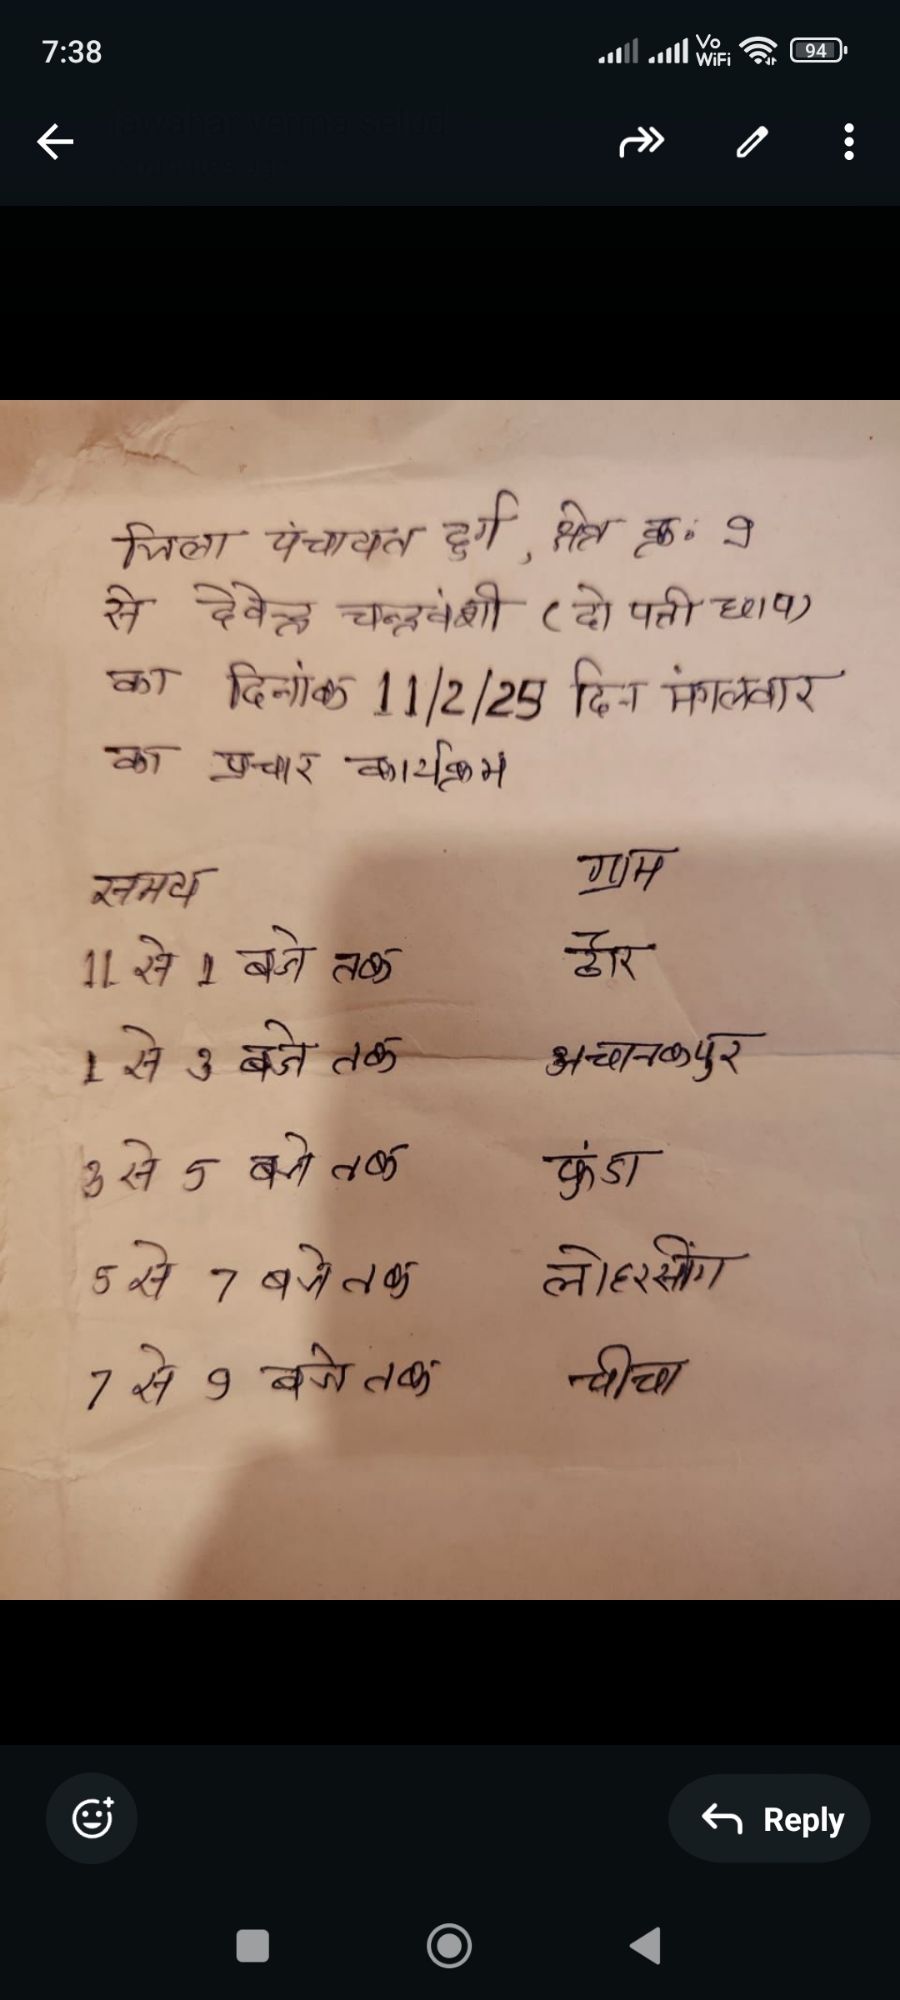 7:38
Vo
WiFi
94
जिला पंचायत दुर्ग, क्षेत्र क्र. 9
से देवेन्द्र चन्द्रवंशी (दो पत्ती छाप)
का दिनांक 11/2/25 दिन मंगलवार
का प्रचार कार्यक्रम
समय ग्राम
11 से 1 बजे तक ढौर
1 से 3 बजे तक अचानकपुर
3 से 5 बजे तक फुंडा
5 से 7 बजे तक लोहरसींग
7 से 9 बजे तक चीचा
Reply